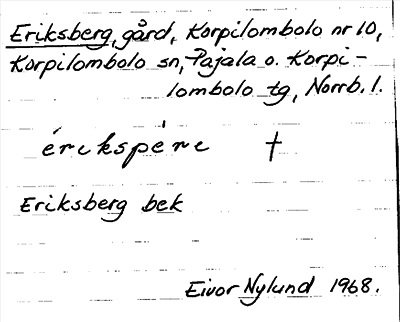 Eriksberg, gård, Korpilombolo nr 10,
Korpilombolo sn, Pajala o. Korpi-
lombolo tg, Norrb. l.
érikspérie †
Eriksberg bek
Eivor Nylund 1968.